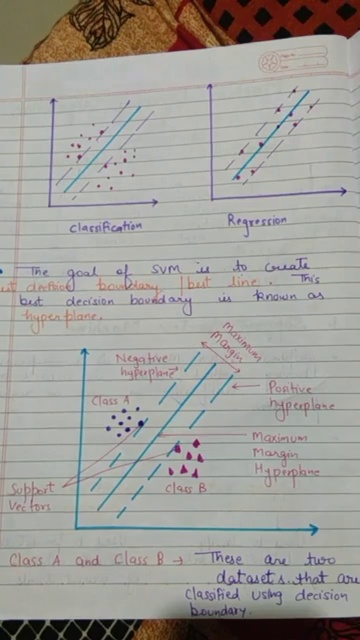 Classification
Regression
The goal of SVM is to create
decision boundary / best line. This
best decision boundary is known as
hyperplane.
Maximum
Margin
Negative
hyperplane
Positive
hyperplane
Class A
Maximum
Margin
Hyperplane
Support
Vectors
Class B
Class A and Class B → These are two
datasets that are
classified using decision
boundary.